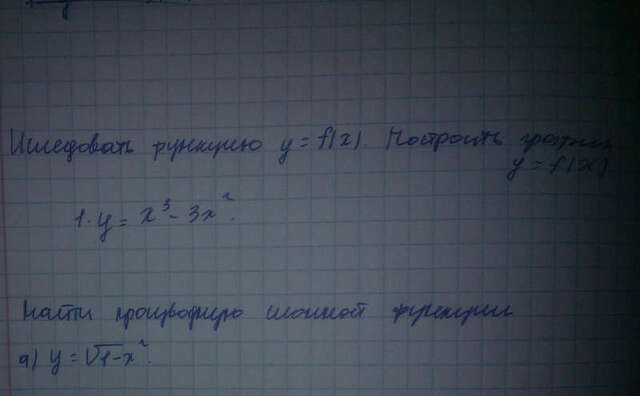 Исследовать функцию y = f(x). Построить график
y = f(x)
1. y = x³ - 3x².
Найти производную сложной функции
а) y = √1-x².